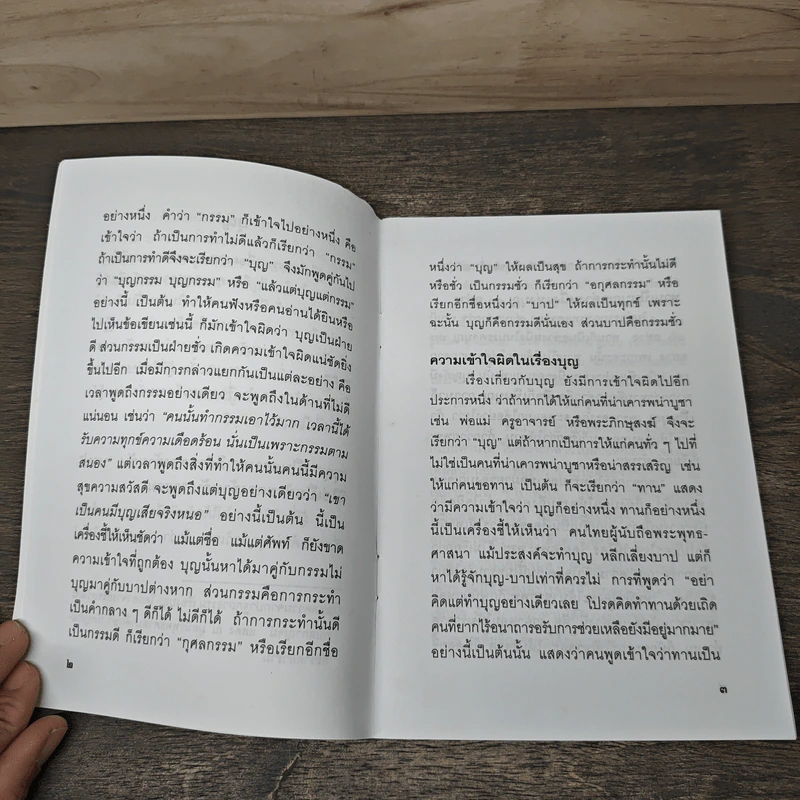 อย่างหนึ่ง คำว่า “กรรม” ก็เข้าใจไปอย่างหนึ่ง คือ
เข้าใจว่า ถ้าเป็นการทำไม่ดีแล้วก็เรียกว่า “กรรม”
ถ้าเป็นการทำดีจึงจะเรียกว่า “บุญ” จึงมักพูดคู่กันไป
ว่า “บุญกรรม บุญกรรม” หรือ “แล้วแต่บุญแต่กรรม”
อย่างนี้ เป็นต้น ทำให้คนฟังหรือคนอ่านได้ยินหรือ
ไปเห็นข้อเขียนเช่นนี้ ก็มักเข้าใจผิดว่า บุญเป็นฝ่าย
ดี ส่วนกรรมเป็นฝ่ายชั่ว เกิดความเข้าใจผิดแน่ชัดยิ่ง
ขึ้นไปอีก เมื่อมีการกล่าวแยกกันเป็นแต่ละอย่าง คือ
เวลาพูดถึงกรรมอย่างเดียว จะพูดถึงในด้านที่ไม่ดี
แน่นอน เช่นว่า “คนนั้นทำกรรมเอาไว้มาก เวลานี้ได้
รับความทุกข์ความเดือดร้อน นั่นเป็นเพราะกรรมตาม
สนอง” แต่เวลาพูดถึงสิ่งที่ทำให้คนนั้นคนนี้มีความ
สุขความสวัสดี จะพูดถึงแต่บุญอย่างเดียวว่า “เขา
เป็นคนมีบุญเสียจริงหนอ” อย่างนี้เป็นต้น นี้เป็น
เครื่องชี้ให้เห็นชัดว่า แม้แต่ชื่อ แม้แต่ศัพท์ ก็ยังขาด
ความเข้าใจที่ถูกต้อง บุญนั้นหาได้มาคู่กับกรรมไม่
บุญมาคู่กับบาปต่างหาก ส่วนกรรมคือการกระทำ
เป็นคำกลาง ๆ ดีก็ได้ ไม่ดีก็ได้ ถ้าการกระทำนั้นดี
เป็นกรรมดี ก็เรียกว่า “กุศลกรรม” หรือเรียกอีกชื่อ
๒
หนึ่งว่า “บุญ” ให้ผลเป็นสุข ถ้าการกระทำนั้นไม่ดี
หรือชั่ว เป็นกรรมชั่ว ก็เรียกว่า “อกุศลกรรม” หรือ
เรียกอีกชื่อหนึ่งว่า “บาป” ให้ผลเป็นทุกข์ เพราะ
ฉะนั้น บุญก็คือกรรมดีนั่นเอง ส่วนบาปคือกรรมชั่ว
ความเข้าใจผิดในเรื่องบุญ
เรื่องเกี่ยวกับบุญ ยังมีการเข้าใจผิดไปอีก
ประการหนึ่ง ว่าถ้าหากได้ให้แก่คนที่น่าเคารพน่าบูชา
เช่น พ่อแม่ ครูอาจารย์ หรือพระภิกษุสงฆ์ จึงจะ
เรียกว่า “บุญ” แต่ถ้าหากเป็นการให้แก่คนทั่ว ๆ ไปที่
ไม่ใช่เป็นคนที่น่าเคารพน่าบูชาหรือน่าสรรเสริญ เช่น
ให้แก่คนขอทาน เป็นต้น ก็จะเรียกว่า “ทาน” แสดง
ว่ามีความเข้าใจว่า บุญก็อย่างหนึ่ง ทานก็อย่างหนึ่ง
นี้เป็นเครื่องชี้ให้เห็นว่า คนไทยผู้นับถือพระพุทธ-
ศาสนา แม้ประสงค์จะทำบุญ หลีกเลี่ยงบาป แต่ก็
หาได้รู้จักบุญ-บาปเท่าที่ควรไม่ การที่พูดว่า “อย่า
คิดแต่ทำบุญอย่างเดียวเลย โปรดคิดทำทานด้วยเถิด
คนที่ยากไร้อนาถารอรับการช่วยเหลือยังมีอยู่มากมาย”
อย่างนี้เป็นต้นนั้น แสดงว่าคนพูดเข้าใจว่าทานเป็น
๓